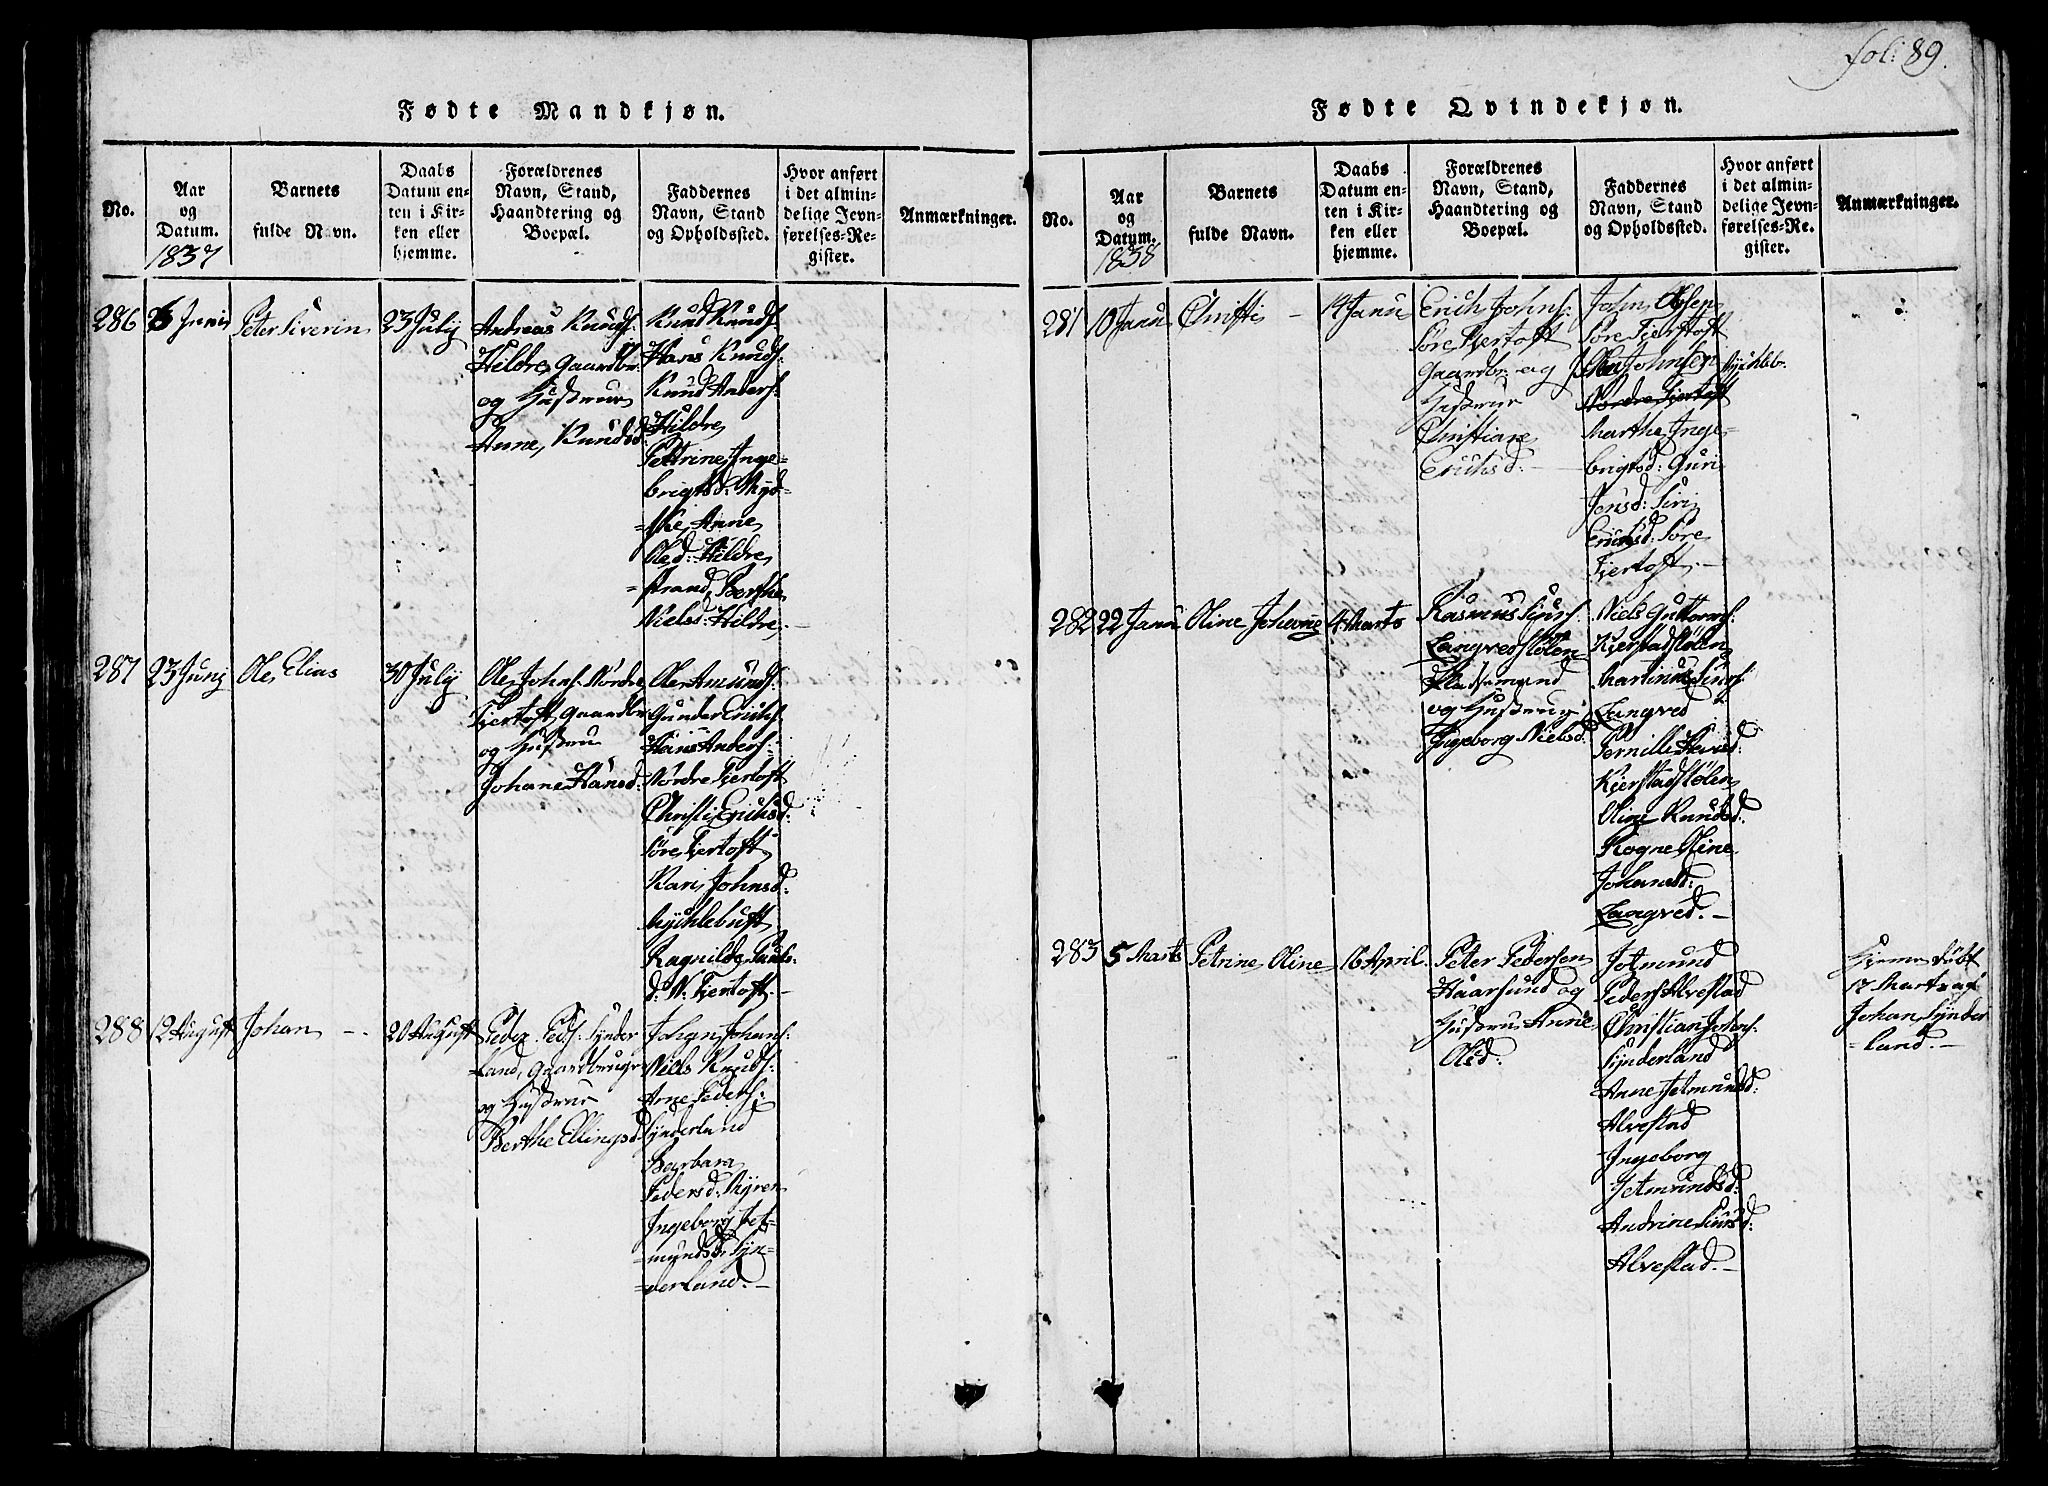 fol: 89.
Fødte Mandkjøn.
No.
Aar
og
Datum.
1837
Barnets
fulde Navn.
Daabs
Datum en-
ten i Kir-
ken eller
hjemme.
Forældrenes
Navn, Stand,
Haandtering og
Boepæl.
Faddernes
Navn, Stand
og Opholdssted.
Hvor anført
i det almin-
delige Jevn-
førelses-Re-
gister.
Anmærkninger.
286
Junii
Peter Siverin
23 July
Andreas Knuds:
Hildre, Gaardbr:
og Hustrue
Anne, Knudsd:
Knud Knuds:
Hans Knuds:
Knud Anders:
Hildre,
Petrine, Inge-
brigtsd:
Anne
Olesd: Hildre
=strand, Berthe
Nielsd: Hildre.
287
23 Juny
Ole, Elias
30 July
Ole Johns: Nordre
Fjertoft Gaardbr:
og Hustrue
Johane Hansd:
Ole Amunds:
Gunder Erichs:
Hans Anders:
Nordre Fjertoft
Christi, Erichsd:
Søre, Fjertoft
Kari, Johnsd:
Myhlebust
Ragnild, Pauls-
d: N: Fjertoft.-
288
12 August
Johan -
20 August
Peder Peds: Synder
land, Gaardbruger
og Hustrue
Berthe Ellingsd:
Johan Johans:
Niels Knuds:
Arne Peders:
Synderland
Barbara
Pedersd: Myren
Ingeborg Jet-
mundsd: Syn-
=derland.-
Fødte Qvindekjøn.
No.
Aar
og
Datum.
1838
Barnets
fulde Navn.
Daabs
Datum en-
ten i Kir-
ken eller
hjemme.
Forældrenes
Navn, Stand,
Haandtering og
Boepæl.
Faddernes
Navn, Stand
og Opholdssted.
Hvor anført
i det almin-
delige Jevn-
førelses-Re-
gister.
Anmærkninger.
281
10 Janu
Christi -
14 Janu
Erich Johns:
Søre Fjertoft
Gaardbr: og
Hustrue
Christiane
Erichsd: -
John, Olsen
Søre Fjertoft
Ole Johnsen
Nordre Fjertoft
Marthe Inge-
brigtsd: Guri
Jensd: Siri
Erichsd: Søre
Fjertoft.-
282
22 Janu
Oline Johanne
4 Marts
Rasmus Siurs:
Langvedstølen
Pladsemand
og Hustrue
Ingeborg Nielsd:
Niels Guttorms:
Kjerstadstølen
Martinus Siurs:
Langved
Pernille
Kjerstadstølen
Oline Knudsd:
Rogne Oline
Johansd:
Langved.-
283
5 Marts
Petrine, Oline
16 April.
Peter Pedersen
Haarsund og
Hustrue Anne
Olesd:
Jetmund
Peders: Alvestad
Christian Johns:
Synderland
Anne Jetmundsd:
Alvestad
Ingeborg
Jetmundsd:
Andrine Siursd:
Alvestad.-
Hjemmedøbt
17 Marts af
Johan Synder
=land.-